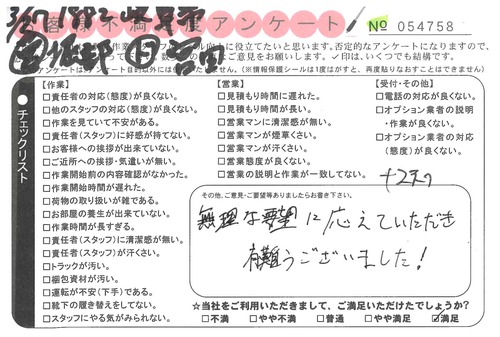 3/27 1882
お客様不満足度アンケート
No 054758
作業 に役立てたいと思います。否定的なアンケートになりますので、
ご意見をお願いします。✓印は、いくつでも結構です。
アンケートは、アンケート目的以外には (※情報保護シールは1度がすと、再度貼りなおすことはできません)
チェックリスト
【作業】
□責任者の対応(態度)が良くない。
□他のスタッフの対応(態度)が良くない。
□作業を見ていて不安がある。
□責任者(スタッフ)に好感が持てない。
□お客様への挨拶が出来ていない。
□ご近所への挨拶・気遣いが無い。
□作業開始前の内容確認がなかった。
□作業開始時間が遅れた。
□荷物の取り扱いが雑である。
□お部屋の養生が出来ていない。
□作業時間が長すぎる。
□責任者(スタッフ)に清潔感が無い。
□責任者(スタッフ)が汗くさい。
□トラックが汚い。
□梱包資材が汚い。
□運転が不安(下手)である。
□靴下の履き替えをしてない。
□スタッフにやる気がみられない。
【営業】
□見積もり時間に遅れた。
□見積もり時間が長い。
□営業マンに清潔感が無い。
□営業マンが煙草くさい。
□営業マンが汗くさい。
□営業態度が良くない。
□営業の説明と作業が一致してない。
【受付・その他】
□電話の対応が良くない。
□オプション業者の説明
・作業が良くない。
□オプション業者の対応
(態度)が良くない。
その他、ご意見・ご要望等ありましたらお書き下さい。
無理な要望に応えていただき
有難うございました!
☆当社をご利用いただきまして、ご満足いただけたでしょうか?
□不満 □やや不満 □普通 □やや満足 ☑満足